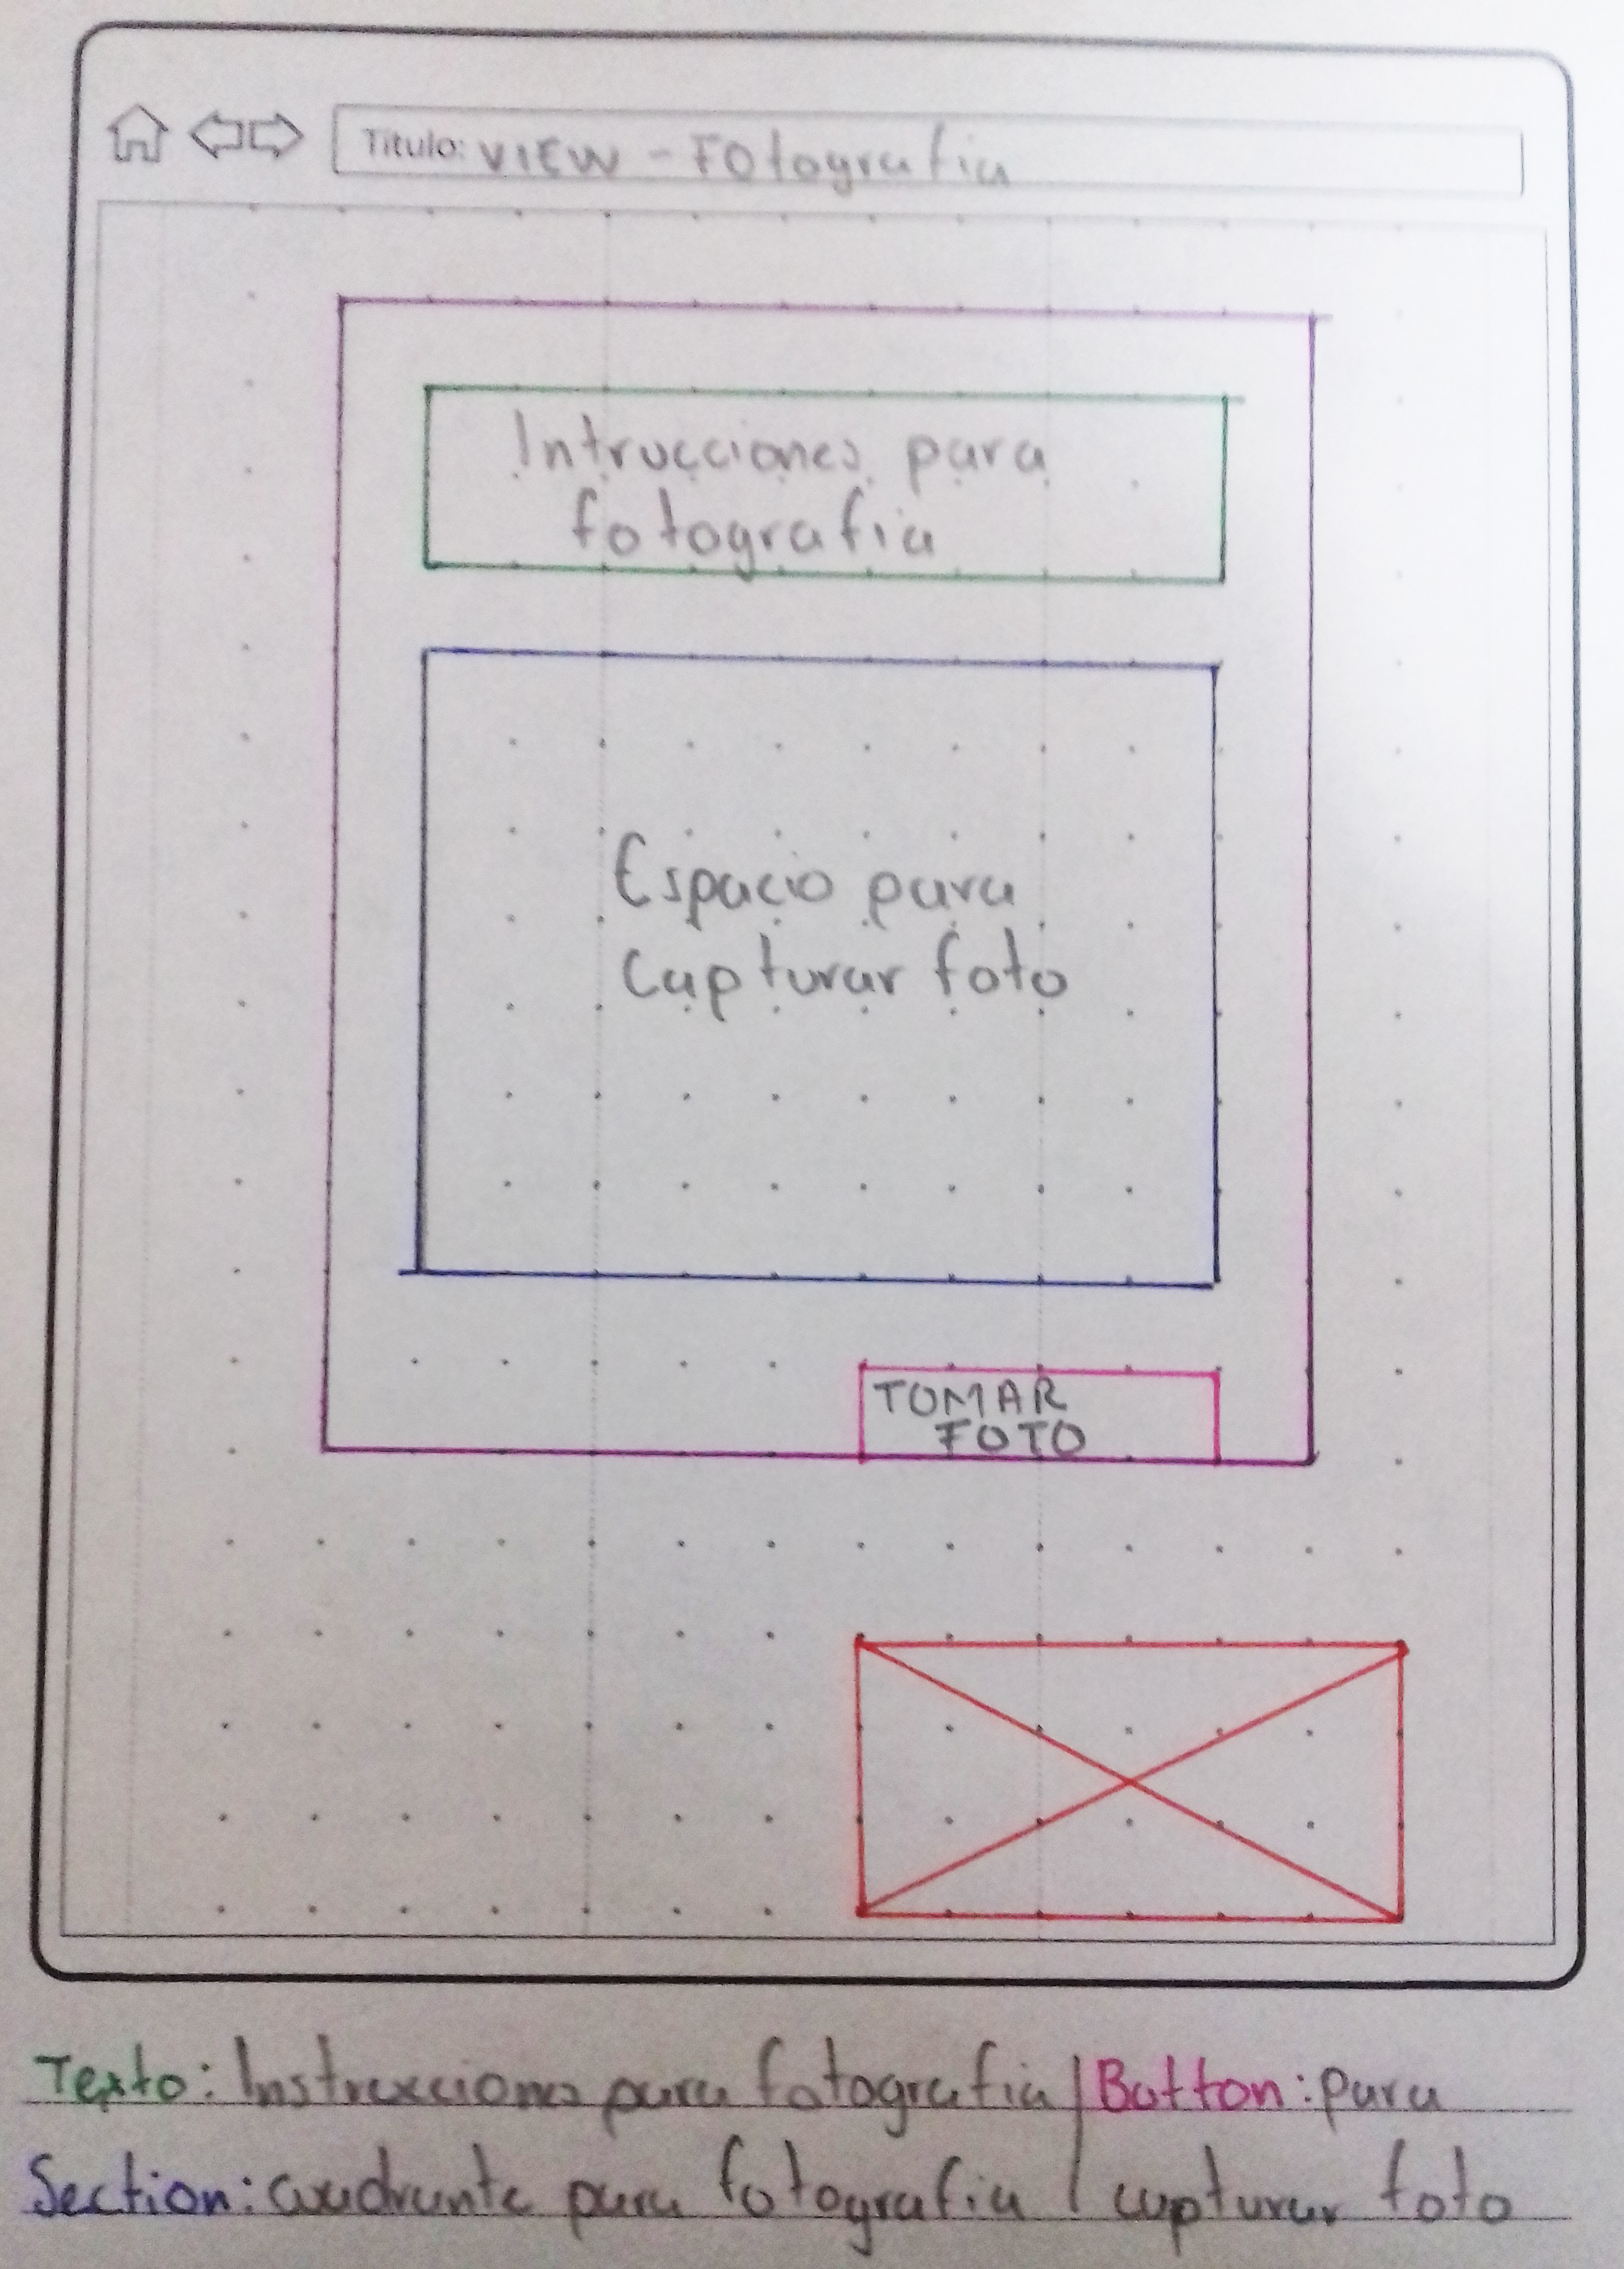 Titulo: VIEW - Fotografia
Intrucciones para
fotografia
Espacio para
Capturar foto
TOMAR
FOTO
Texto: Instrucciones para fotografia | Button: para
Section: cuadrante para fotografia | capturar foto